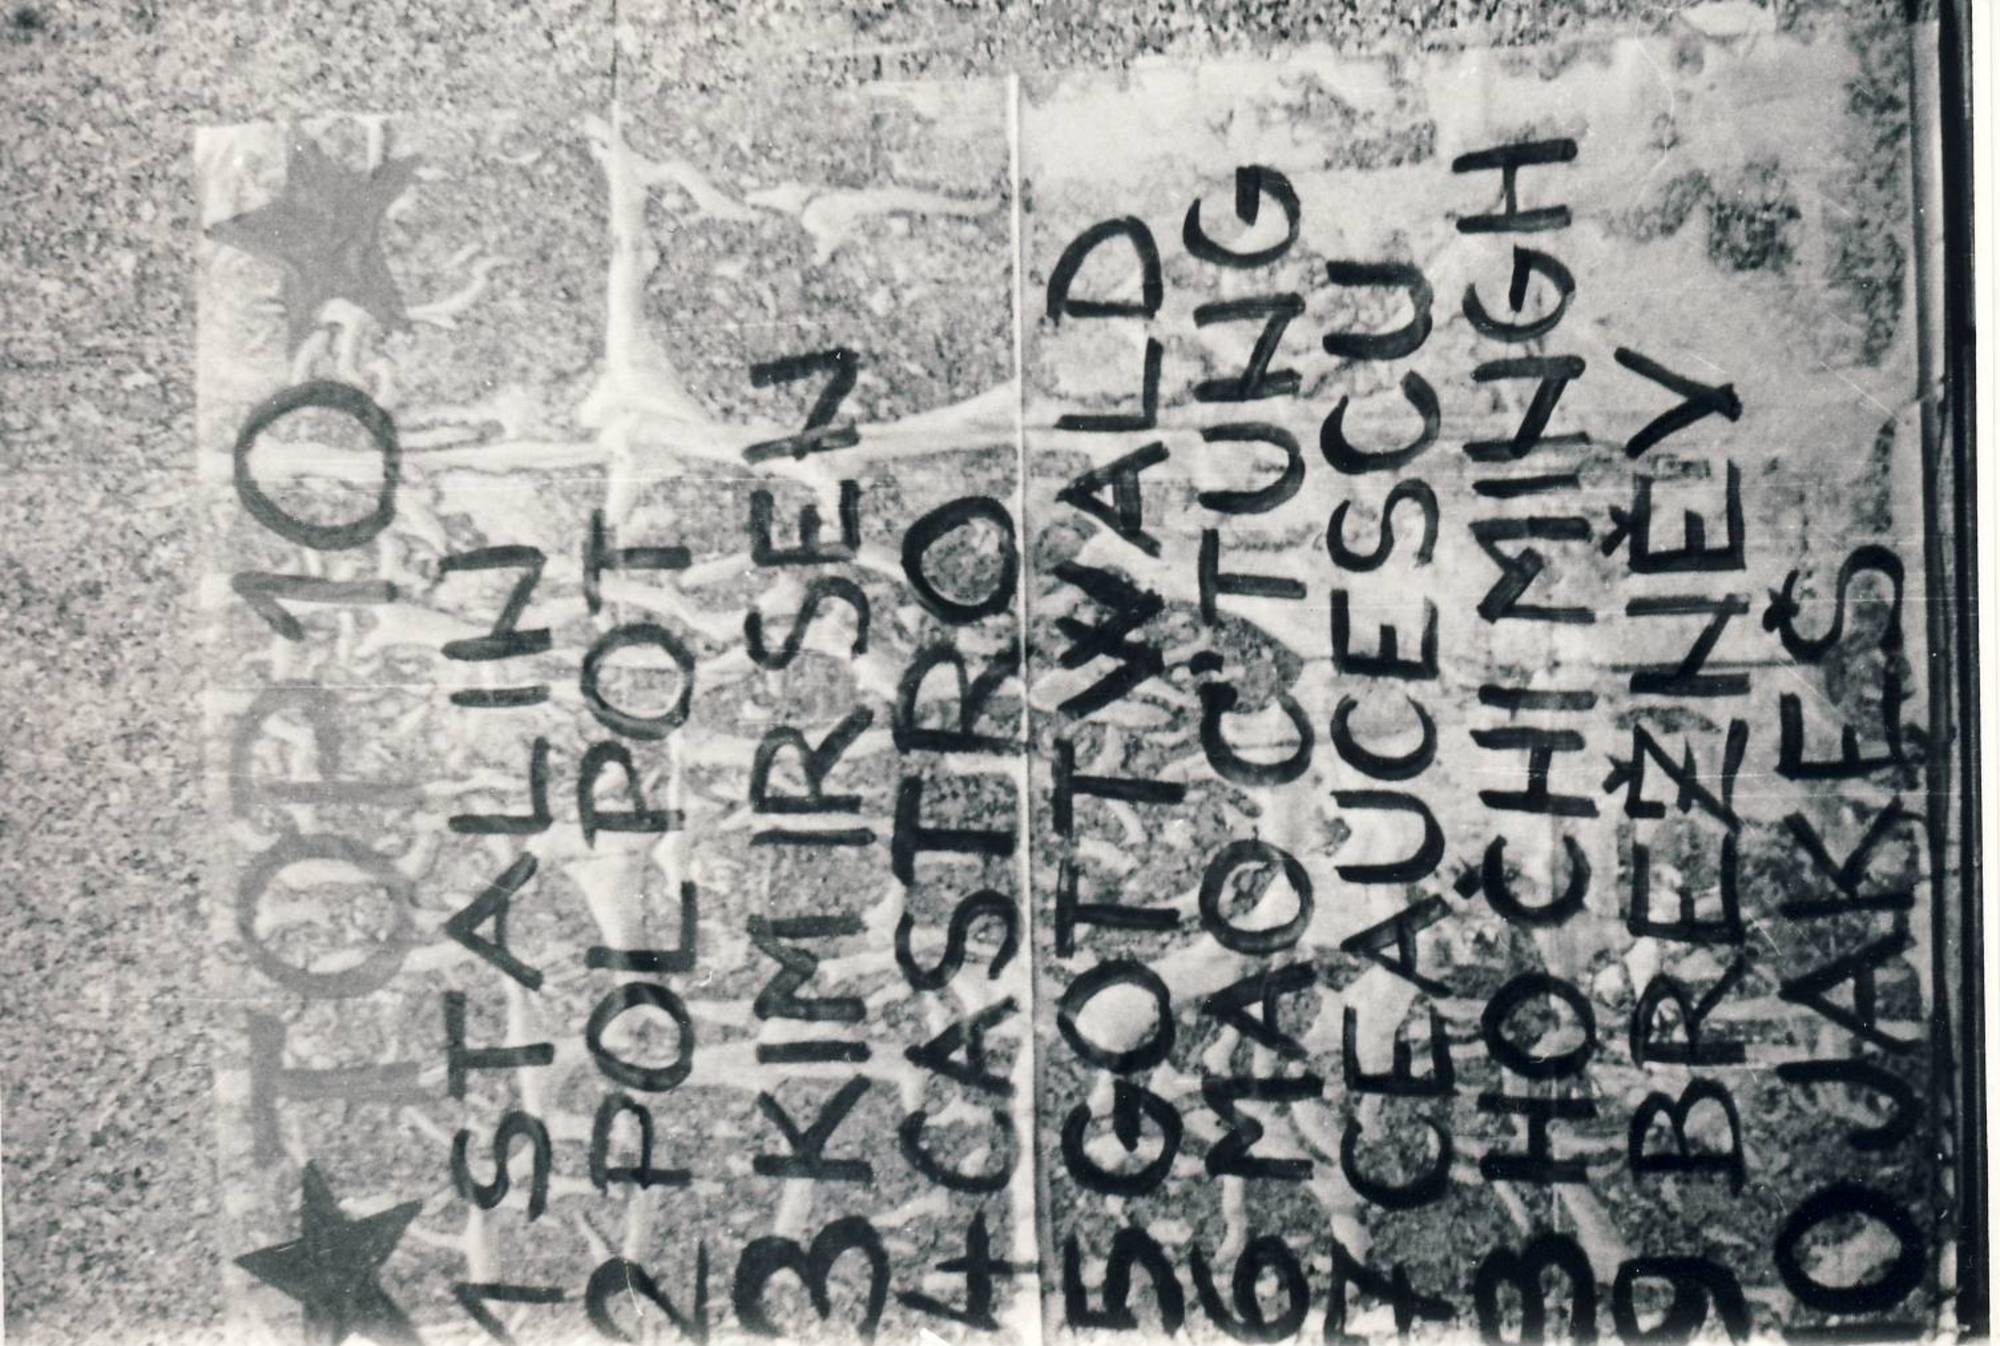 ★ TOP 10 ★
1 STALIN
2 POL POT
3 KIM IR SEN
4 CASTRO
5 GOTTWALD
6 MAO C'TUNG
7 CEAUCESCU
8 HO ČHI MINGH
9 BREŽNĚV
10 JAKEŠ